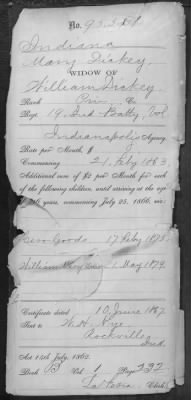 No. 93,2
Indiana
Mary Dickey
WIDOW OF
William Dickey
Rank Priv. Co.
Regt. 19, Ind Batty, Vol
Indianapolis Agency.
Rate per Month, $ 8
Commencing 21, Feby 1863,
Additional sum of $2 per Month for each
of the following children, until arriving at the age
of 16 years, commencing July 25, 1866, viz:
17 Feby 1878.
William 1, May 1879.
Certificate dated 10, June 1867
Sent to
Rockville,
Ind
Act 14th July, 1862.
Book B Vol. 1 Page 232
Clerk